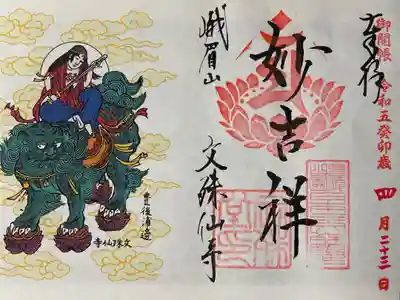 御開帳 令和五癸卯歳 四月二十三日
奉拝
妙吉祥
峨眉山
文殊仙寺
豊後浦邉
文珠仙寺